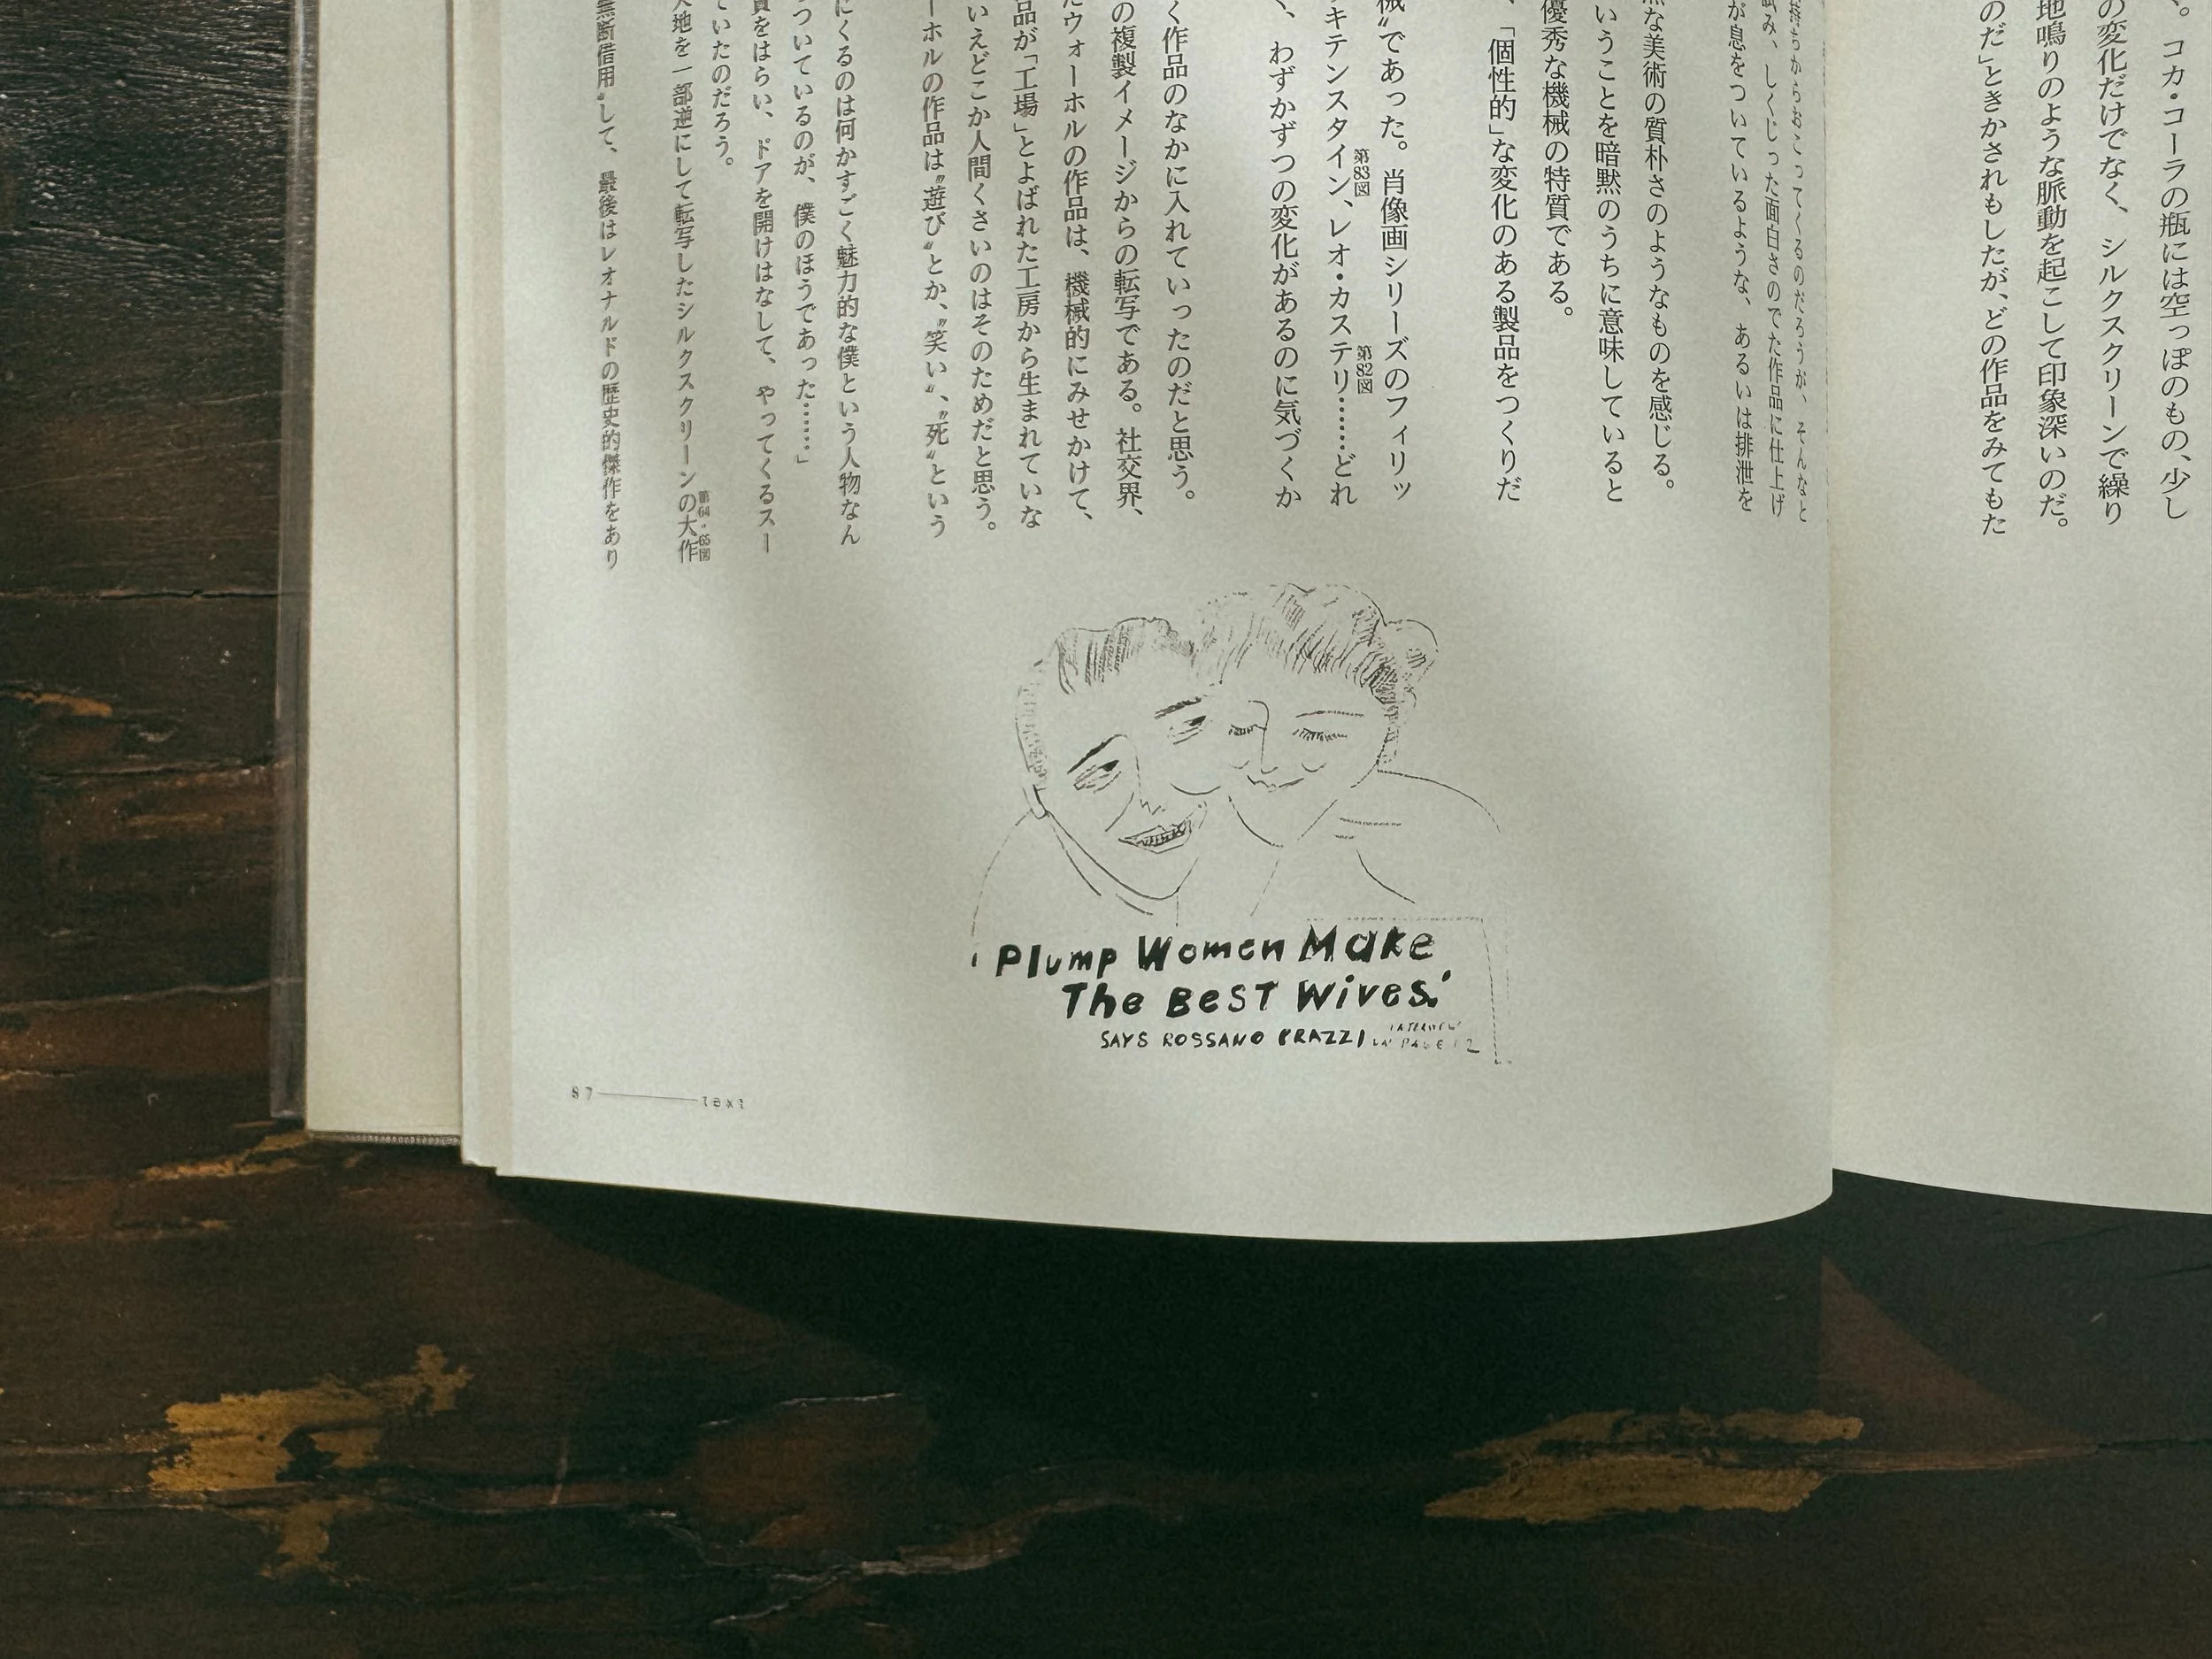 。コカ・コーラの瓶には空っぽのもの、少し
の変化だけでなく、シルクスクリーンで繰り
地鳴りのような脈動を起こして印象深いのだ。
のだ」ときかされもしたが、どの作品をみてもた
持ちからおこってくるのだろうが、そんなと
試み、しくじった面白さのでた作品に仕上げ
が息をついているような、あるいは排泄を
な美術の質朴さのようなものを感じる。
いうことを暗黙のうちに意味していると
優秀な機械の特質である。
、「個性的」な変化のある製品をつくりだ
械〟であった。肖像画シリーズのフィリッ
キテンスタイン、レオ・カステリ……どれ
第83図
第82図
、わずかずつの変化があるのに気づくか
く作品のなかに入れていったのだと思う。
の複製イメージからの転写である。社交界、
たウォーホルの作品は、機械的にみせかけて、
品が「工場」とよばれた工房から生まれていな
いえどこか人間くさいのはそのためだと思う。
ーホルの作品は〝遊び〟とか、〝笑い〟、〝死〟という
にくるのは何かすごく魅力的な僕という人物なん
ついているのが、僕のほうであった……」
をはらい、ドアを開けはなして、やってくるスー
ていたのだろう。
天地を一部逆にして転写したシルクスクリーンの大作
第64・65図
無断借用〟して、最後はレオナルドの歴史的傑作をあり
Plump Women Make
The BeST Wives.'
SAYS ROSSANO BRAZZI
INTERVIEW
ON PAGE 12
87
text